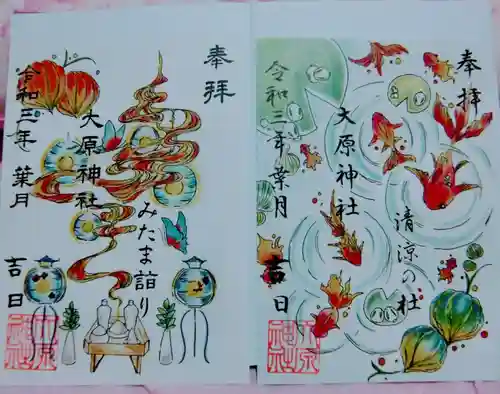 奉拝
大原神社
みたま詣り
令和三年 葉月
吉日
大原神社
奉拝
大原神社
清涼の杜
令和三年葉月
吉日
大原神社